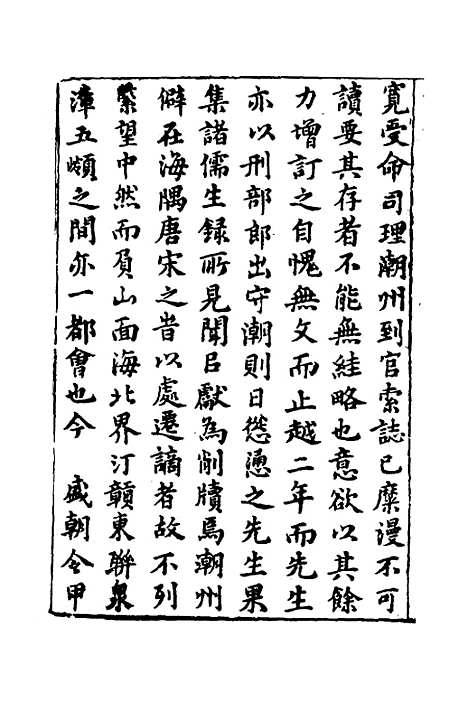 寛受命司理潮州到官索誌已糜漫不可
讀要其存者不能無絓略也意欲以其餘
力增訂之自愧無文而止越二年而先生
亦以刑部郎出守潮則日慫慂之先生果
集諸儒生録所見聞㠯獻為削牘焉潮州
僻在海隅唐宋之昔以處遷謫者故不列
緊望中然而負山面海北界汀贛東聯泉
漳五嶺之間亦一都會也今　盛朝令甲